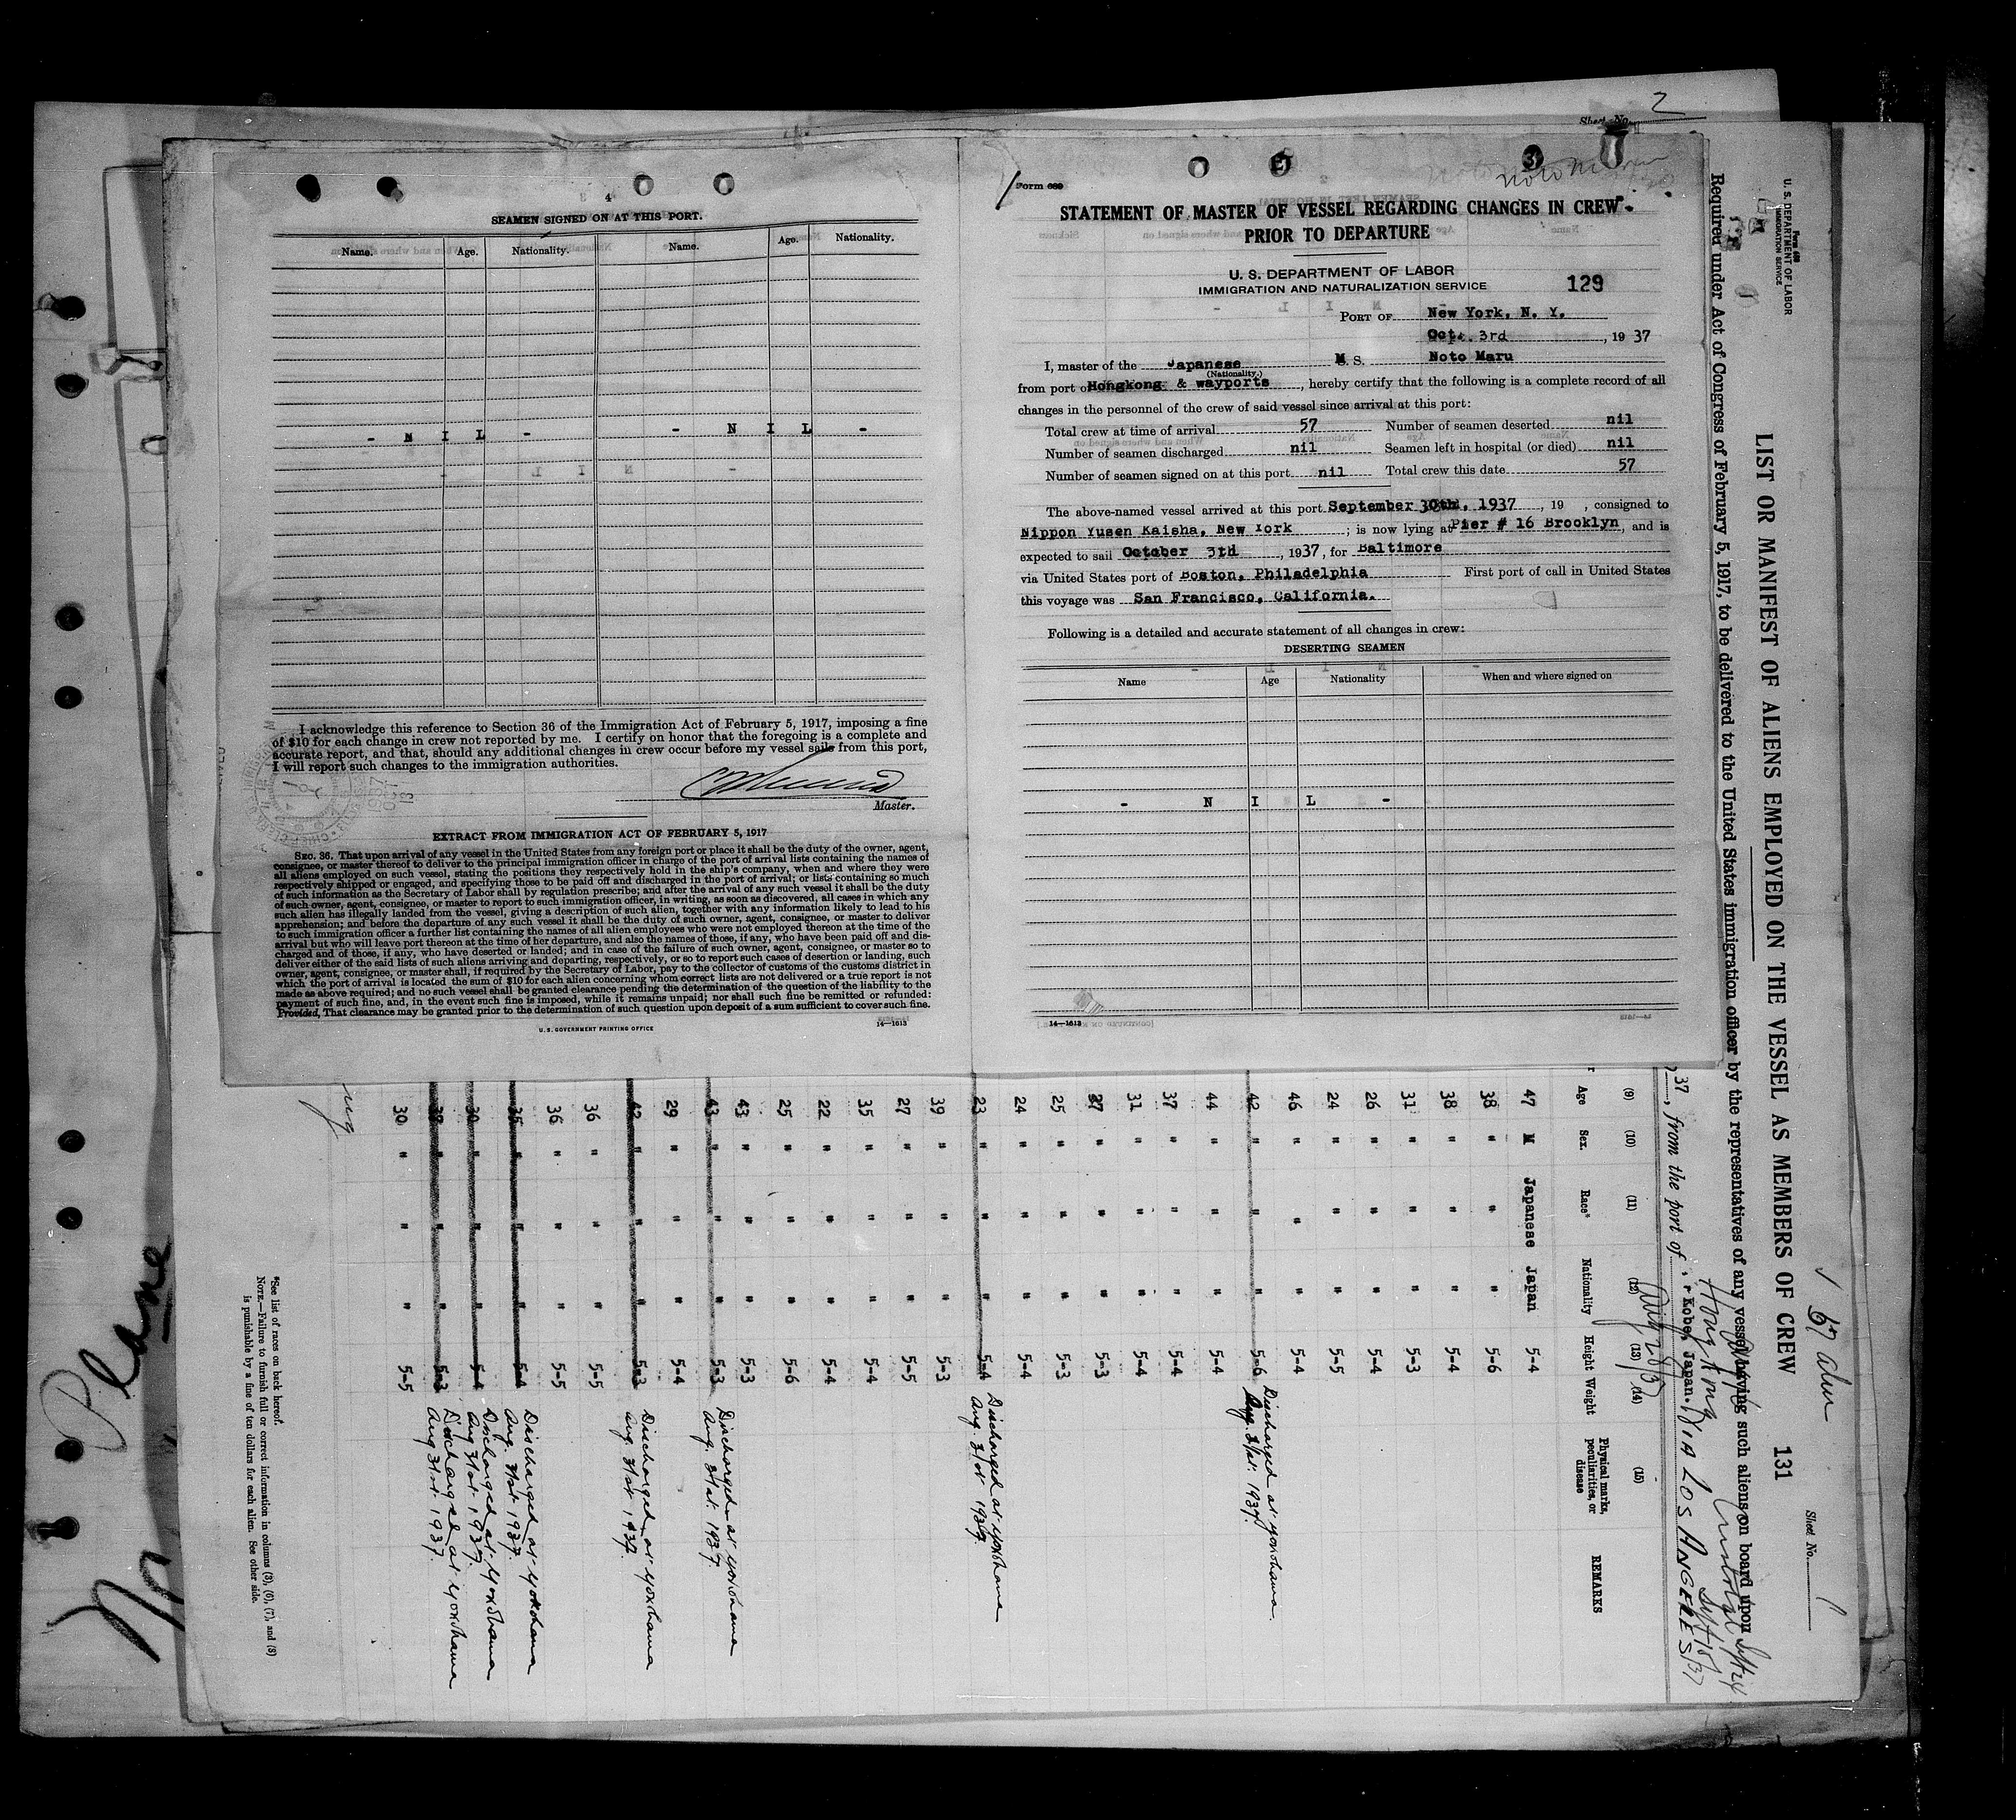 4
SEAMEN SIGNED ON AT THIS PORT.
Name. Age. Nationality. Name. Age. Nationality.
- N I L - - N I L -
I acknowledge this reference to Section 36 of the Immigration Act of February 5, 1917, imposing a fine
of $10 for each change in crew not reported by me. I certify on honor that the foregoing is a complete and
accurate report, and that, should any additional changes in crew occur before my vessel sails from this port,
I will report such changes to the immigration authorities.
Master.
EXTRACT FROM IMMIGRATION ACT OF FEBRUARY 5, 1917
SEC. 36. That upon arrival of any vessel in the United States from any foreign port or place it shall be the duty of the owner, agent,
consignee, or master thereof to deliver to the principal immigration officer in charge of the port of arrival lists containing the names of
all aliens employed on such vessel, stating the positions they respectively hold in the ship's company, when and where they were
respectively shipped or engaged, and specifying those to be paid off and discharged in the port of arrival; or lists containing so much
of such information as the Secretary of Labor shall by regulation prescribe; and after the arrival of any such vessel it shall be the duty
of such owner, agent, consignee, or master to report to such immigration officer, in writing, as soon as discovered, all cases in which any
such alien has illegally landed from the vessel, giving a description of such alien, together with any information likely to lead to his
apprehension; and before the departure of any such vessel it shall be the duty of such owner, agent, consignee, or master to deliver
to such immigration officer a further list containing the names of all alien employees who were not employed thereon at the time of the
arrival but who will leave port thereon at the time of her departure, and also the names of those, if any, who have been paid off and dis-
charged and of those, if any, who have deserted or landed; and in case of the failure of such owner, agent, consignee, or master so to
deliver either of the said lists of such aliens arriving and departing, respectively, or so to report such cases of desertion or landing, such
owner, agent, consignee, or master shall, if required by the Secretary of Labor, pay to the collector of customs of the customs district in
which the port of arrival is located the sum of $10 for each alien concerning whom correct lists are not delivered or a true report is not
made as above required; and no such vessel shall be granted clearance pending the determination of the question of the liability to the
payment of such fine, and, in the event such fine is imposed, while it remains unpaid; nor shall such fine be remitted or refunded:
Provided, That clearance may be granted prior to the determination of such question upon deposit of a sum sufficient to cover such fine.
U. S. GOVERNMENT PRINTING OFFICE 14—1613
Form 689
Noto Maru
STATEMENT OF MASTER OF VESSEL REGARDING CHANGES IN CREW
PRIOR TO DEPARTURE
U. S. DEPARTMENT OF LABOR
IMMIGRATION AND NATURALIZATION SERVICE 129
PORT OF New York, N. Y.
Oct. 3rd, 1937
I, master of the Japanese M. S. Noto Maru
(Nationality.)
from port of Hongkong & wayports, hereby certify that the following is a complete record of all
changes in the personnel of the crew of said vessel since arrival at this port:
Total crew at time of arrival 57 Number of seamen deserted nil
Number of seamen discharged nil Seamen left in hospital (or died) nil
Number of seamen signed on at this port nil Total crew this date 57
The above-named vessel arrived at this port September 30th, 1937, 19 , consigned to
Nippon Yusen Kaisha, New York; is now lying at Pier # 16 Brooklyn, and is
expected to sail October 3rd, 1937, for Baltimore
via United States port of Boston, Philadelphia First port of call in United States
this voyage was San Francisco, California.
Following is a detailed and accurate statement of all changes in crew:
DESERTING SEAMEN
Name Age Nationality When and where signed on
- N I L -
14—1613
Sheet No. 2
Form 689
U. S. DEPARTMENT OF LABOR
IMMIGRATION SERVICE
Sheet No. 1
LIST OR MANIFEST OF ALIENS EMPLOYED ON THE VESSEL AS MEMBERS OF CREW 131
Required under Act of Congress of February 5, 1917, to be delivered to the United States immigration officer by the representatives of any vessel having such aliens on board upon
37, from the port of Kobe, Japan. VIA LOS ANGELES
Hong Kong
(9) (10) (11) (12) (13) (14) (15)
Age Sex Race* Nationality Height Weight Physical marks, peculiarities, or disease REMARKS
47 M Japanese Japan 5-4
38 " " " 5-6
38 " " " 5-4
31 " " " 5-3
26 " " " 5-4
24 " " " 5-5
46 " " " 5-4
42 " " " 5-6 Discharged at Yokohama Aug. 31st. 1937.
44 " " " 5-4
37 " " " 5-4
31 " " " 5-4
27 " " " 5-3
25 " " " 5-3
24 " " " 5-4
23 " " " 5-4 Discharged at Yokohama Aug. 31st. 1937.
39 " " " 5-3
27 " " " 5-5
35 " " " 5-4
22 " " " 5-4
25 " " " 5-6
43 " " " 5-3
43 " " " 5-3 Discharged at Yokohama Aug. 31st. 1937.
29 " " " 5-4
42 " " " 5-3 Discharged at Yokohama Aug. 31st 1937.
36 " " " 5-5
36 " " " 5-5
35 " " " 5-4 Discharged at Yokohama Aug. 31st. 1937.
30 " " " 5-4 Discharged at Yokohama Aug 31st. 1937.
" " " 5-3 Discharged at Yokohama Aug 31st. 1937.
30 " " " 5-5
*See list of races on back hereof.
NOTE.—Failure to furnish full or correct information in columns (3), (6), (7), and (8)
is punishable by a fine of ten dollars for each alien. See other side.